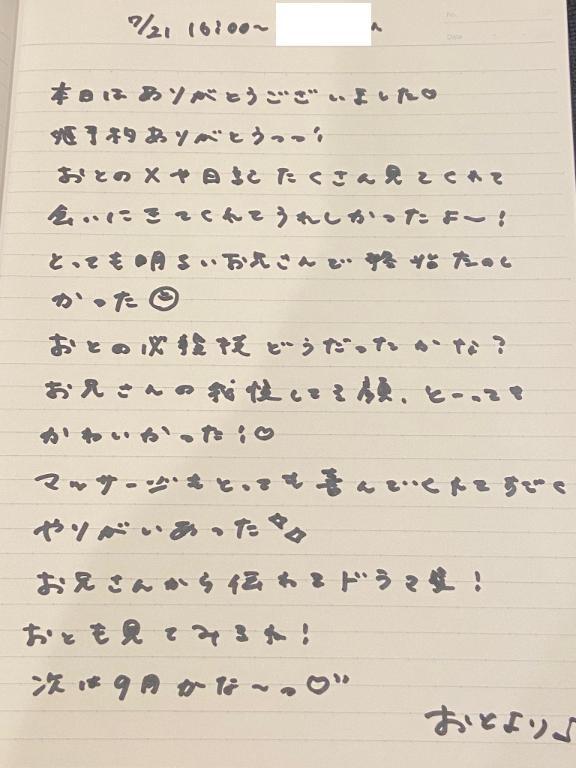 7/21 16:00〜 ん
No.
Date
本日はありがとうございました♡
姫予約ありがとうっっ!
おとのXや日記たくさん見てくれて
会いにきてくれてうれしかったよ〜!
とっても明るいお兄さんで終始たのし
かった☺
おとの必殺技どうだったかな?
お兄さんの我慢してる顔、とーっても
かわいかった!♡
マッサージもとっても喜んでいくれてすごく
やりがいあった✨
お兄さんから伝わるドラマ!
おとも見てみるね!
次は9月かな〜っ♡"
おとより♪